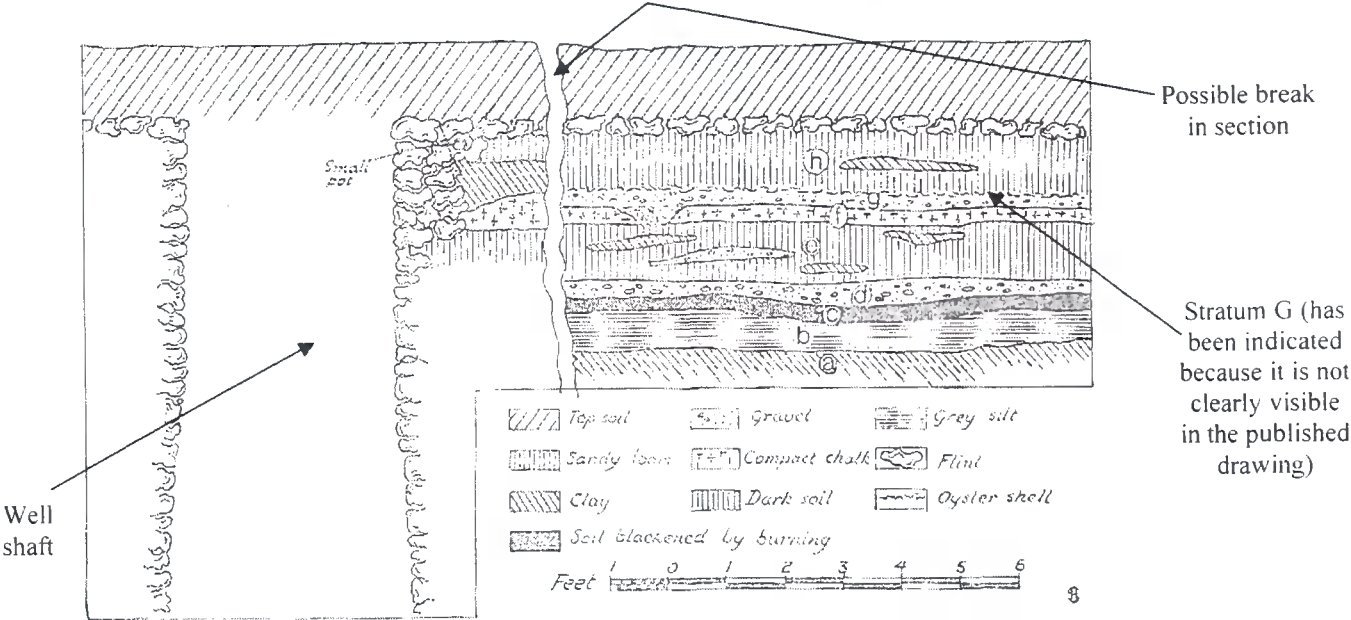 Possible break
in section
Small
pot
h
g
f
e
d
c
b
a
Stratum G (has
been indicated
because it is not
clearly visible
in the published
drawing)
Well
shaft
Top soil
Gravel
Grey silt
Sandy loam
Compact chalk
Flint
Clay
Dark soil
Oyster shell
Soil blackened by burning
Feet 1 0 1 2 3 4 5 6
8